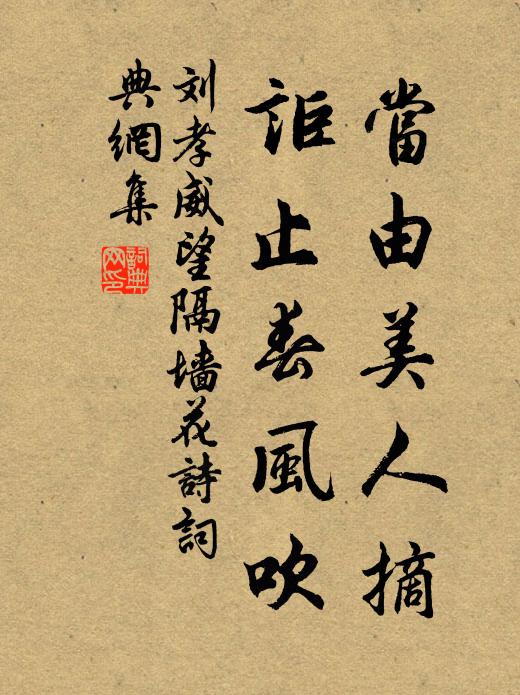 當由美人摘
詎止春風吹
刘孝威望隔墙花詩詞
典網集
詞典
网印